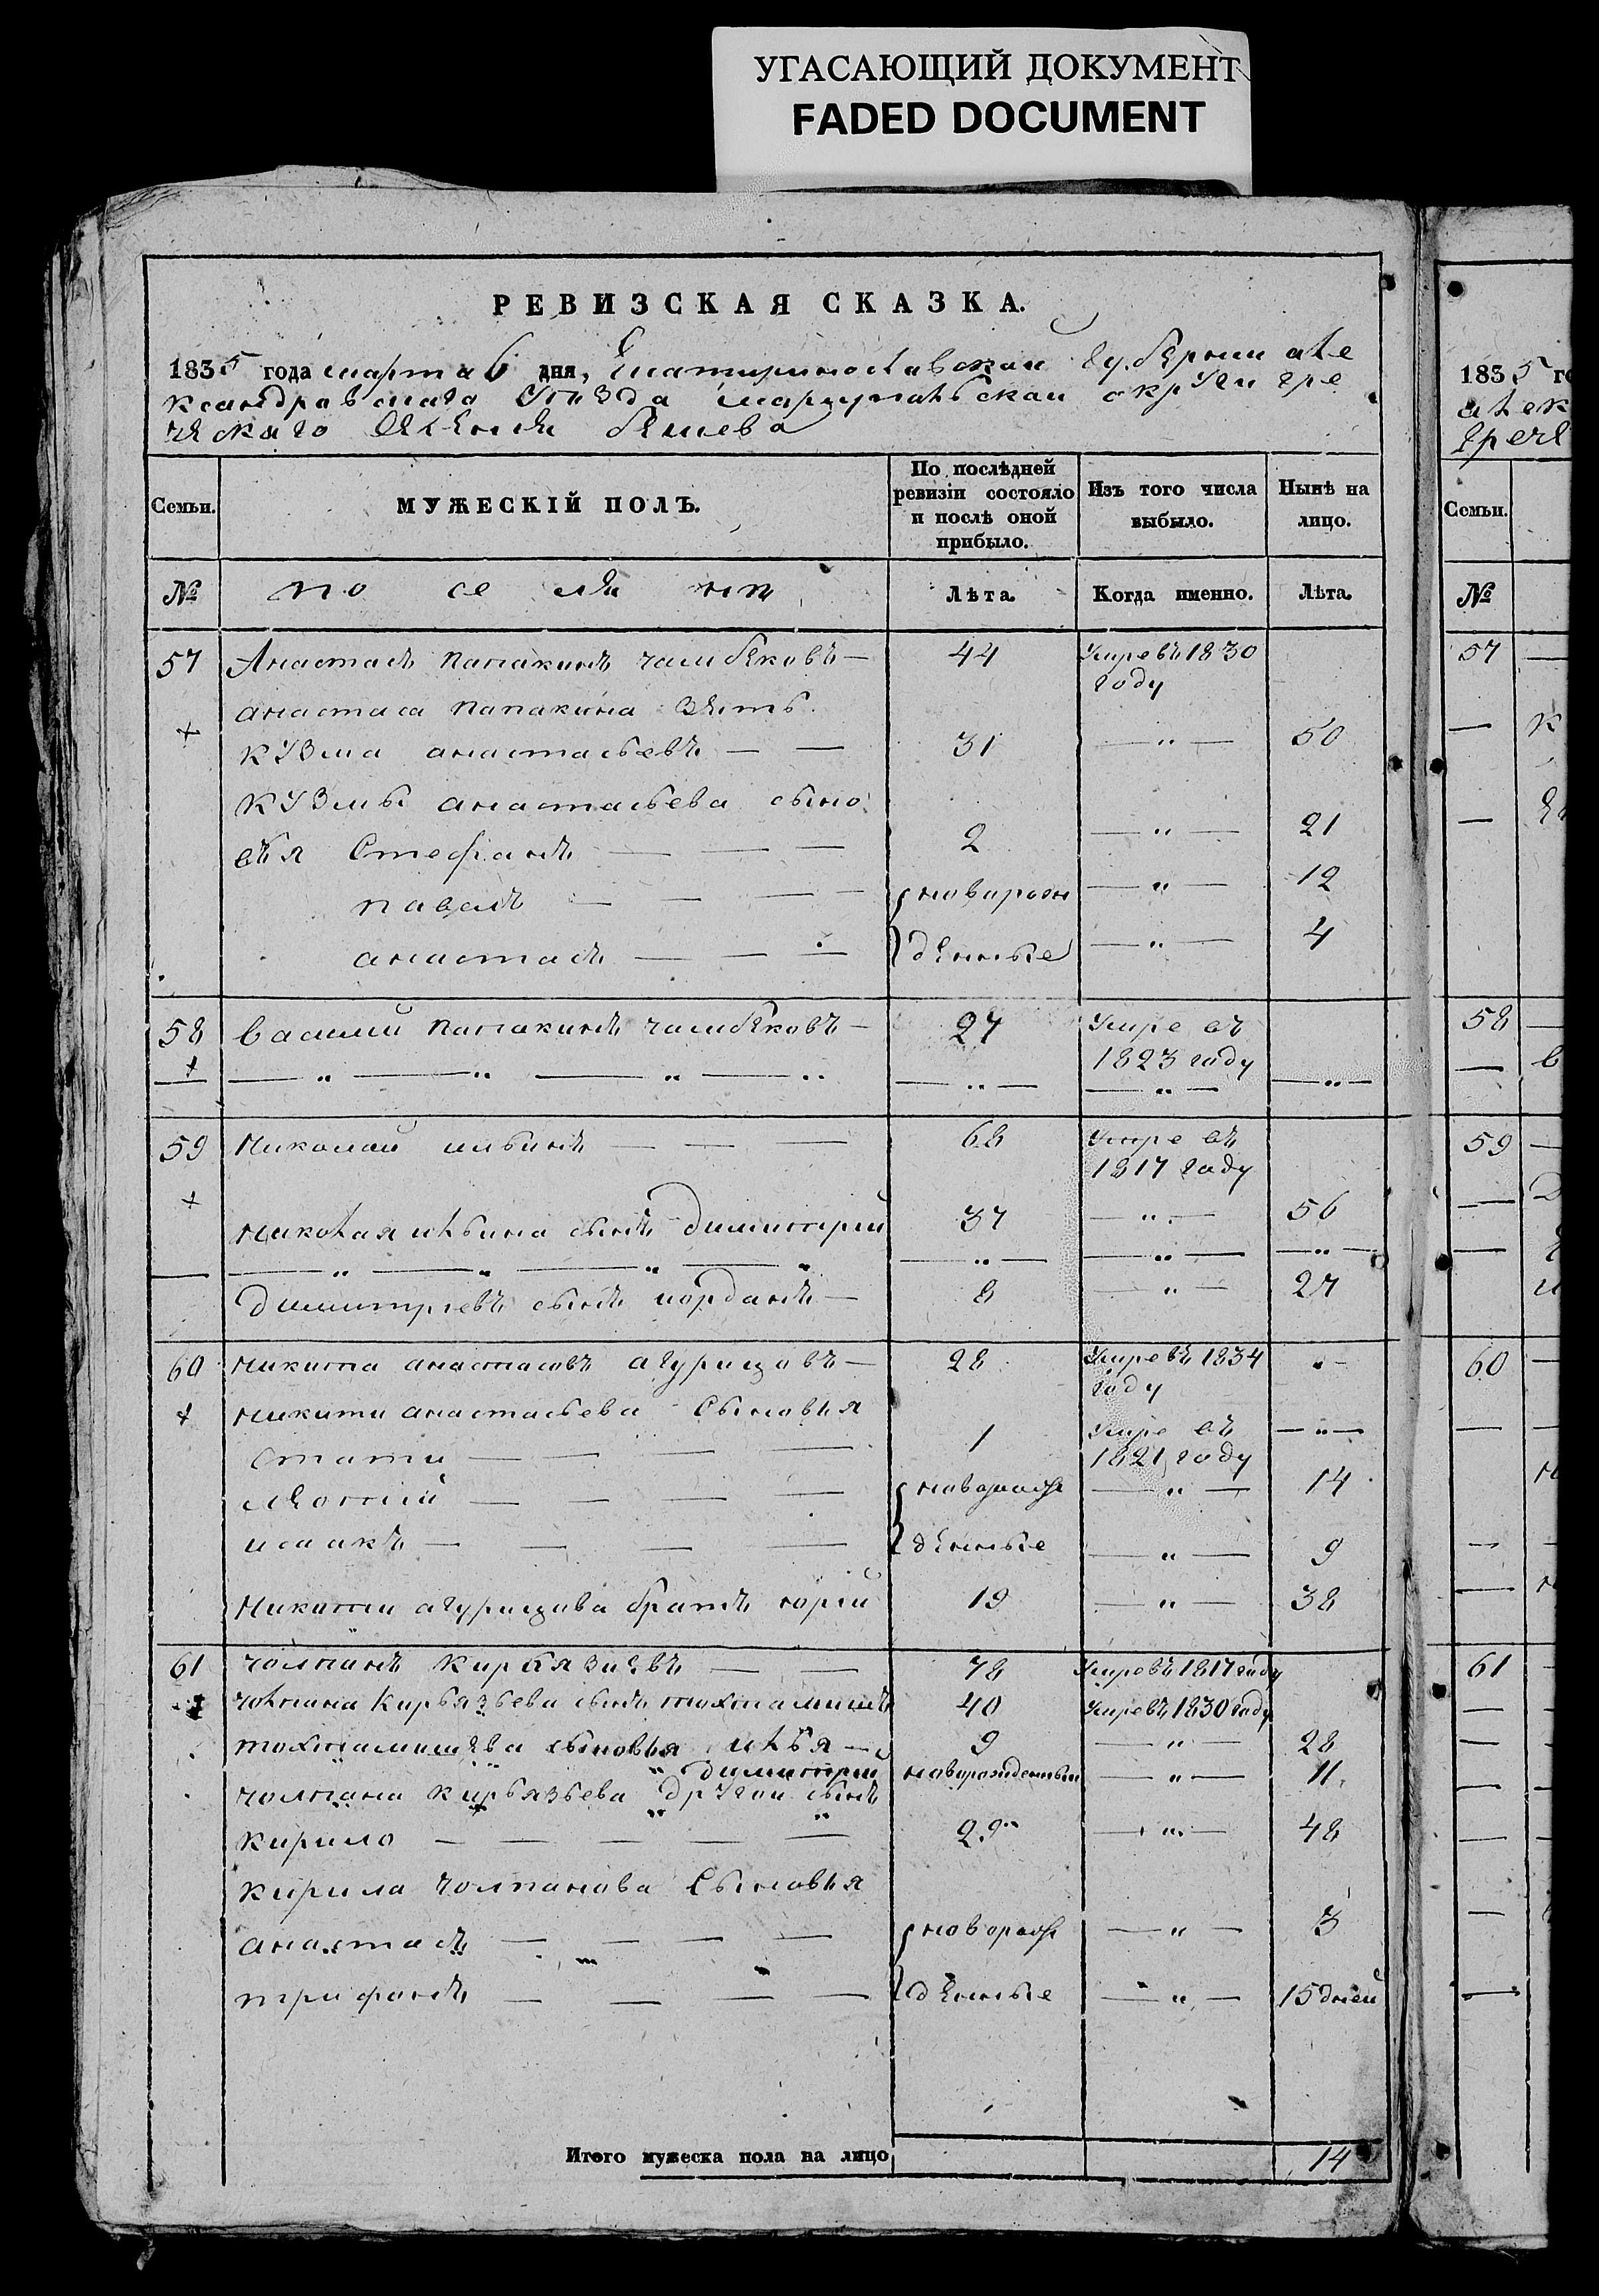 УГАСАЮЩИЙ ДОКУМЕНТ
FADED DOCUMENT
РЕВИЗСКАЯ СКАЗКА.
1835 года марта 6 дня, Екатеринославской губернии але
ксандровскаго уезда мариупольской округи гре
ческаго селения бешева
Семьи.
МУЖЕСКІЙ ПОЛЪ.
По послѣдней ревизіи состояло и послѣ оной прибыло.
Изъ того числа выбыло.
Нынѣ на лицо.
№ поселянъ Лѣта. Когда именно. Лѣта.
57 Анастасъ папакинъ чамбековъ — 44 Умре въ 1830
году
анастаса папакина зять
кузма анастасьевъ — — 31 — " — 50
кузьмы анастасьева сыно
вья Стефанъ — — — 2 — " — 21
павелъ — — — новорож — " — 12
анастасъ — — — денные — " — 4
58 василий папакинъ чамбековъ — 27 Умре въ
1823 году
— " — " — " — " — " — — " — — " —
59 Николай ильинъ — — — 68 Умре въ
1817 году
николая ильина сынъ димитрий 37 — " — 56
— " — " — " — " — " — — " — — " —
димитриевъ сынъ иорданъ — 8 — " — 27
60 никита анастасовъ агурицовъ — 28 Умре въ 1834 " -
году
никити анастасьева сыновья
стати — — — — 1 Умре въ — " —
1821 году
леонтий — — — — новорож — " — 14
исаакъ — — — — денные — " — 9
никити агурицова братъ юрий 19 — " — 38
61 чолпанъ кирбязиевъ — — 78 Умре въ 1817 году
чолпана кирбязьева сынъ тохтамишъ 40 Умре въ 1830 году
тохтамишева сыновья илья — 9 — " — 28
" димитрий новорожденный — " — 11
чолпана кирбязьева другой сынъ
кирило — — — — — 29 — " — 48
кирила чолпанова сыновья
анастасъ — — — — новорож — " — 3
трифонъ — — — — денные — " — 15 дней
Итого мужеска пола на лицо 14
1835 го
алек
грече
Семьи.
№
57 —
— К
—
58 —
— в
59 —
—
—
60 —
—
—
—
61
—
—
—
—
—
—